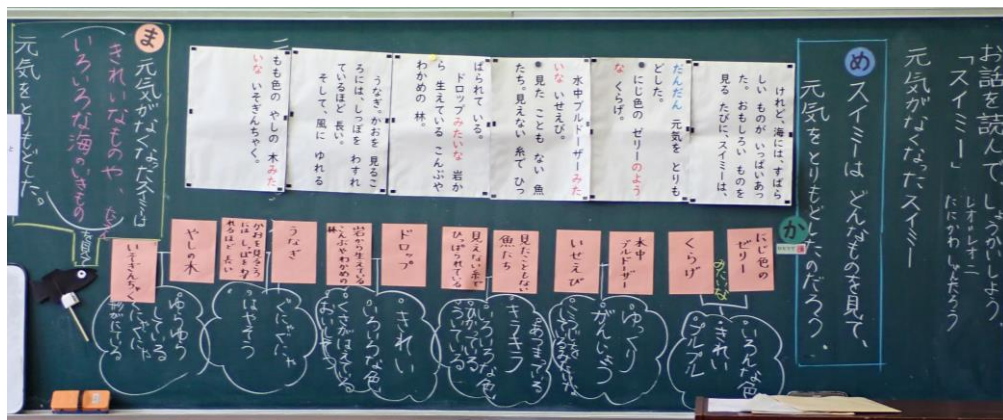 お話を読んで、しょうかいしよう
「スイミー」
レオ=レオニ
たにかわしゅんたろう
元気がなくなったスイミー
め
スイミーは どんなものを見て、
元気をとりもどしたのだろう。
か
けれど、海には、すばら
しい ものが いっぱいあっ
た。おもしろい ものを
見る たびに、スイミーは、
だんだん 元気を とりも
どした。
●にじ色の ゼリーのよう
な くらげ。
水中ブルドーザーみた
いな いせえび。
●見た ことも ない 魚
たち。見えない 糸で ひっ
ぱられて いる。
ドロップみたいな 岩か
ら 生えている こんぶや
わかめの 林。
うなぎ。かおを 見るこ
ろには、しっぽを わすれ
ているほど 長い。
そして、風に ゆれる
もも色の やしの 木みた
いな いそぎんちゃく。
にじ色の
ゼリー
みたいな
くらげ
水中
ブルドーザー
いせえび
見たこともない
魚たち
見えない糸で
ひっぱられている
ドロップ
岩から生えている
こんぶやわかめの
林
うなぎ
かおを見るころ
には しっぽをわす
れるほど 長い
やしの木
いそぎんちゃく
いろんな色
きれい
プルプル
ゆっくり
がんじょう
あつまっている
キラキラ
いろいろな色
ういている
きれい
いろいろな色
くさがはえている
ゆらゆら
している
ま
元気がなくなったスイミーは
きれいなものや、
いろいろな海のいきもの
を見て
元気をとりもどした。